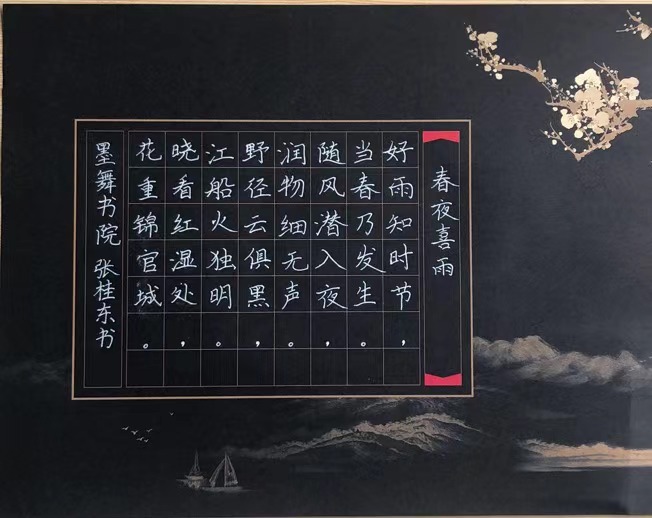 春夜喜雨
好雨知时节，
当春乃发生。
随风潜入夜，
润物细无声。
野径云俱黑，
江船火独明。
晓看红湿处，
花重锦官城。
墨舞书院 张桂东书